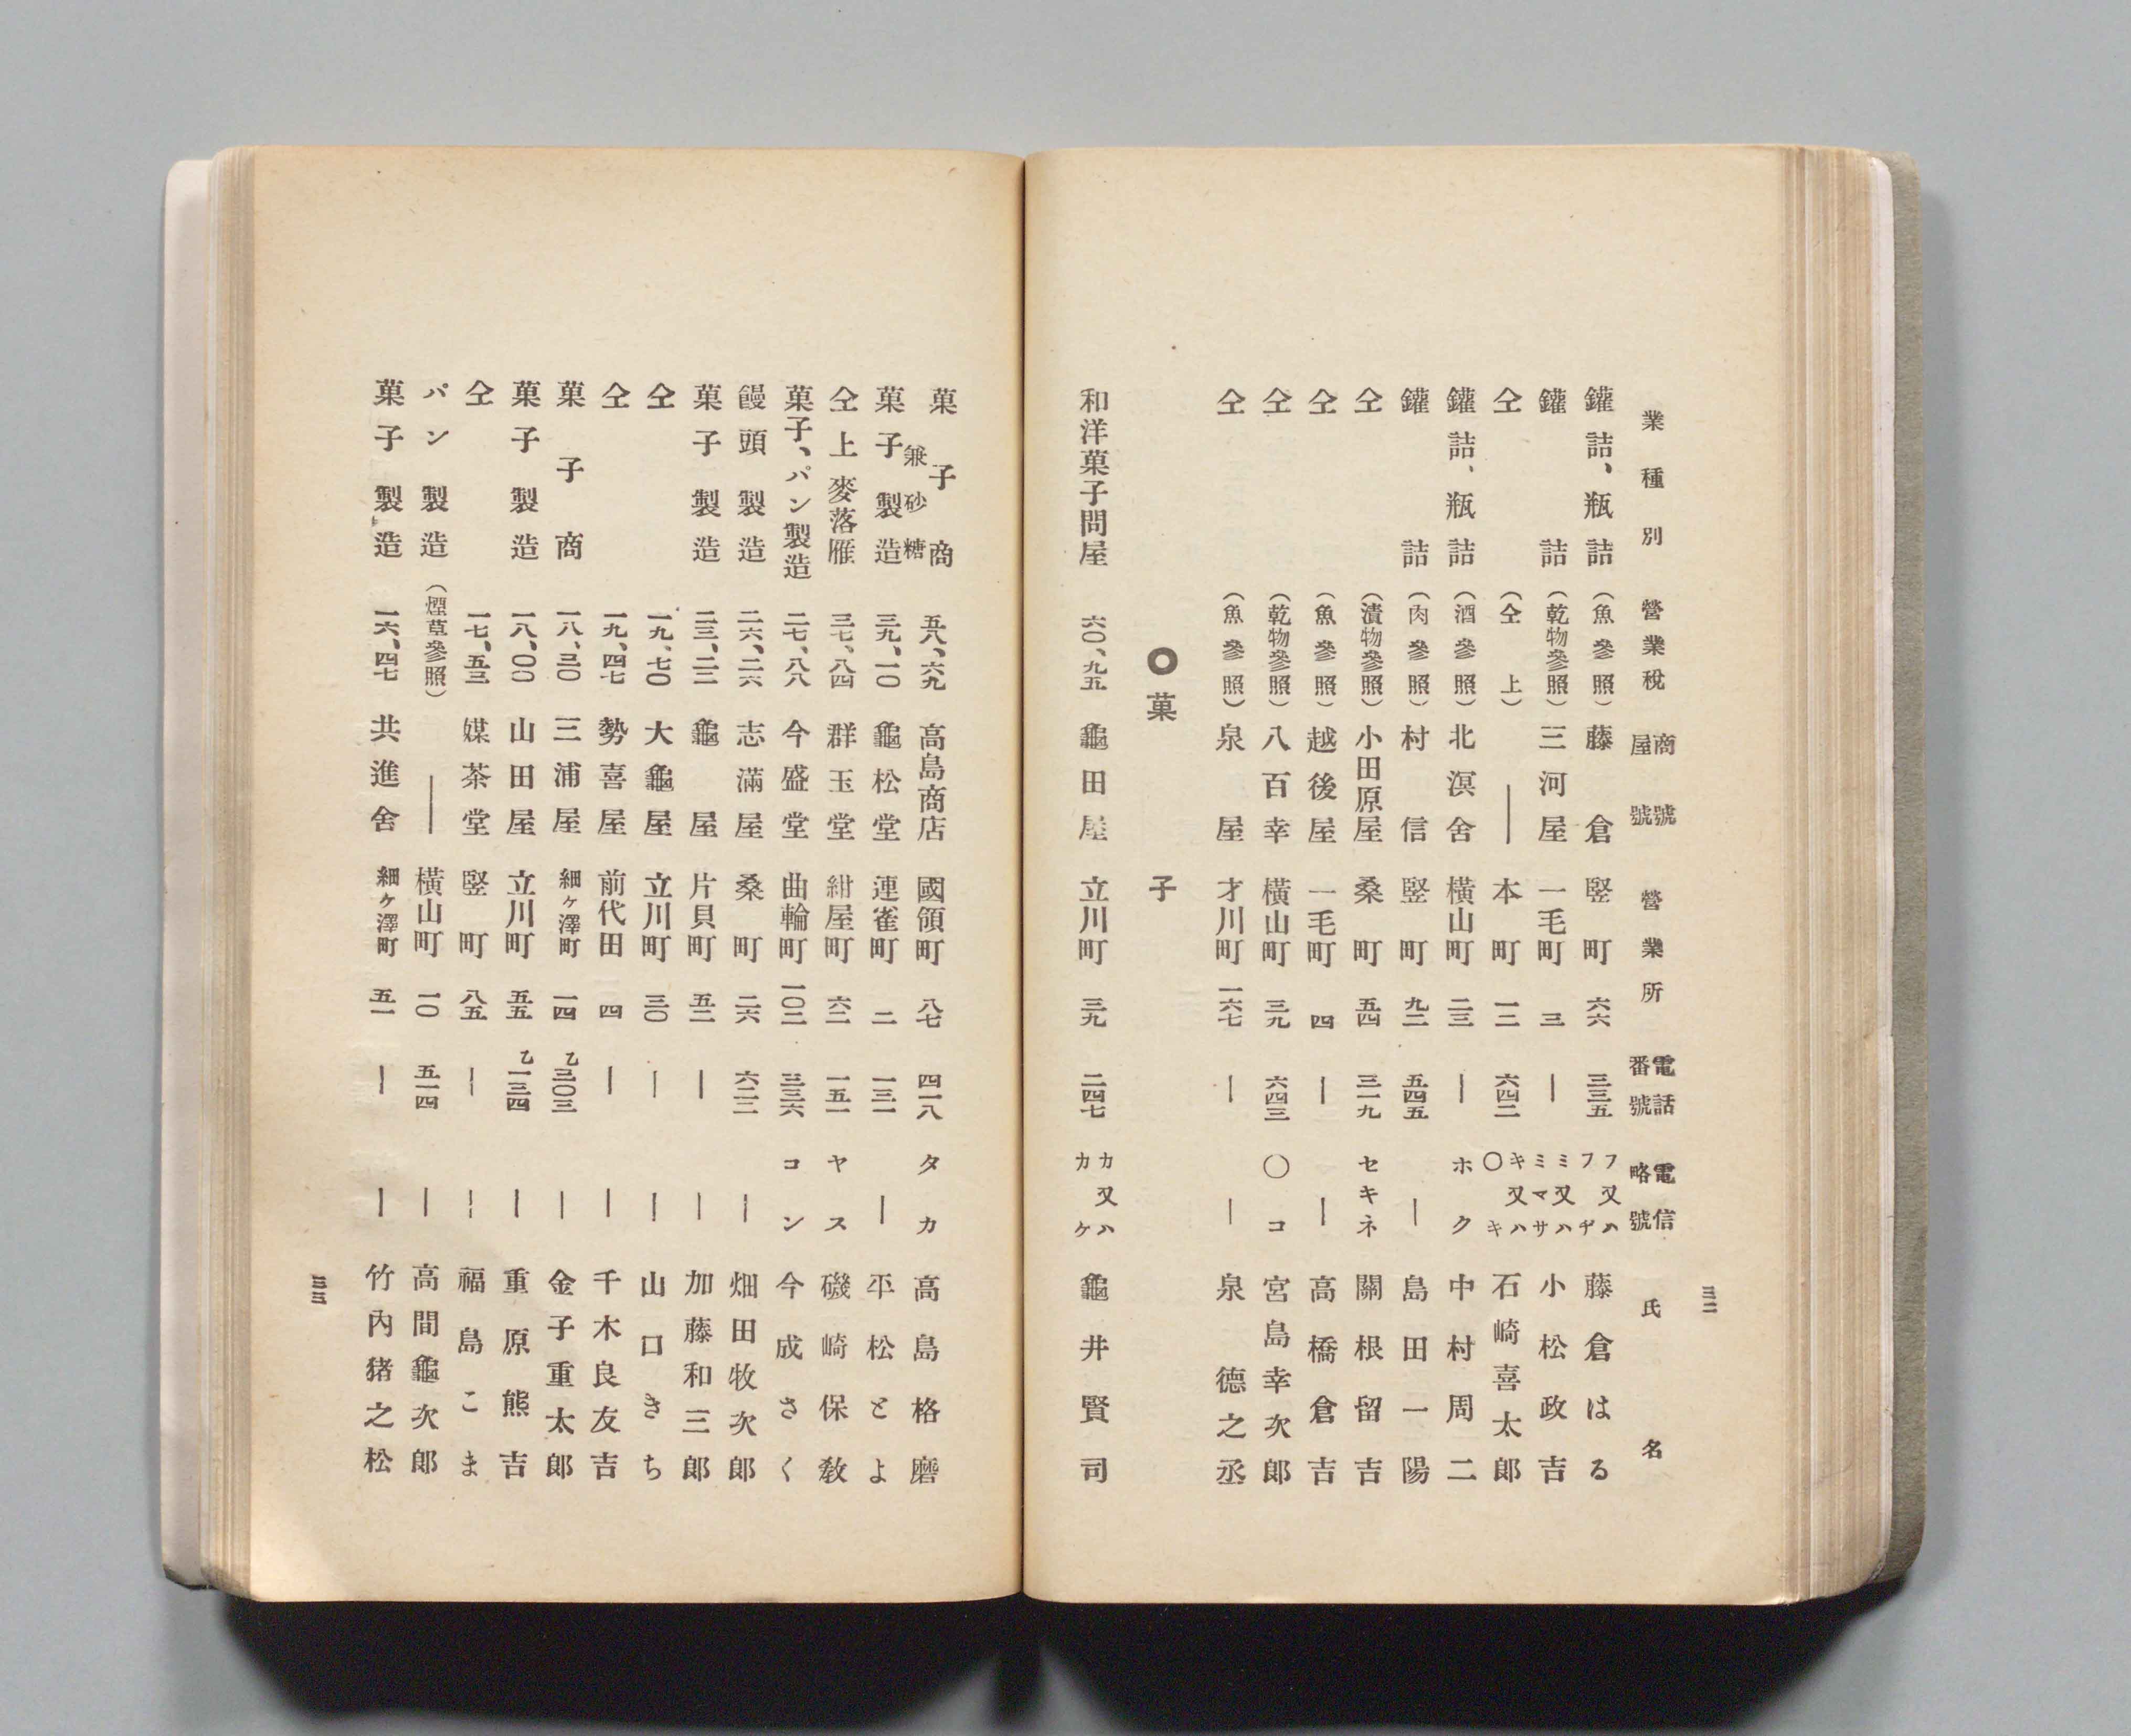 業種別 營業稅 商號屋號 營業所 電話番號 電信略號 氏名
鑵詰、瓶詰 （魚參照） 藤倉 竪町 六六 三三五 フ又ハフヂ 藤倉はる
鑵詰 （乾物參照） 三河屋 一毛町 三 ― ミ又ハミマサ 小松政吉
仝 （仝上） ― 本町 一二 六四二 キ又ハ〇キ 石崎喜太郎
鑵詰、瓶詰 （酒參照） 北溟舍 橫山町 二三 ― ホク 中村周二
鑵詰 （肉參照） 村信 竪町 九二 五四五 ― 島田一陽
仝 （漬物參照） 小田原屋 桑町 五四 三一九 セキネ 關根留吉
仝 （魚參照） 越後屋 一毛町 四 ― ― 高橋倉吉
仝 （乾物參照） 八百幸 橫山町 三九 六四三 〇コ 宮島幸次郎
仝 （魚參照） 泉屋 才川町 一六七 ― ― 泉德之丞
〇菓子
和洋菓子問屋 六〇、九五 龜田屋 立川町 三九 二四七 カ又ハカカケ 龜井賢司
三二
菓子商兼砂糖 五八、六九 高島商店 國領町 八七 四一八 タカ 高島格磨
菓子製造 三九、一〇 龜松堂 連雀町 二 一三一 ― 平松とよ
仝上麥落雁 三七、八四 群玉堂 紺屋町 六二 一五一 ヤス 磯崎保敎
菓子、パン製造 二七、八八 今盛堂 曲輪町 一〇二 三三六 コン 今成さく
饅頭製造 二六、二六 志滿屋 桑町 二六 六二二 ― 畑田牧次郎
菓子製造 二三、二二 龜屋 片貝町 五二 ― ― 加藤和三郎
仝 一九、七〇 大龜屋 立川町 三〇 ― ― 山口きち
仝 一九、四七 勢喜屋 前代田 四 ― ― 千木良友吉
菓子商 一八、三〇 三浦屋 細ヶ澤町 一四 乙三〇三 ― 金子重太郎
菓子製造 一八、〇〇 山田屋 立川町 五五 乙一三四 ― 重原熊吉
仝 一七、五三 媒茶堂 竪町 八五 ― ― 福島こま
パン製造 （煙草參照） ― 橫山町 一〇 五一四 ― 高間龜次郎
菓子製造 一六、四七 共進舍 細ヶ澤町 五一 ― ― 竹內猪之松
三三